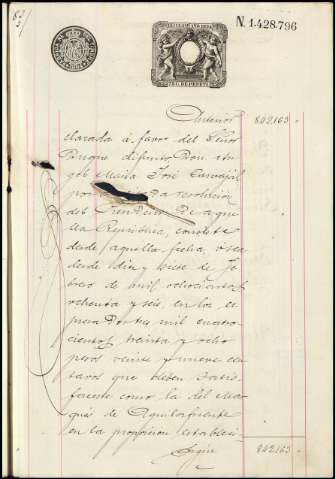 N. 1.428.796
Anterior 842163
clarada á favor del Señor
Duque difunto Don
Maria José Carvajal
por resolucion
del Presidente de aque
lla República, consiste
desde aquella fecha, ó sea
desde diez y siete de Fe
brero de mil ochocientos
ochenta y seis, en los
pesos tres mil cuatro
cientos treinta y ocho
pesos veinte y nueve cen
tavos que deben satis
facerse como la del Mar
qués de Aguilafuente
en la proporcion estableci
Sigue 842163